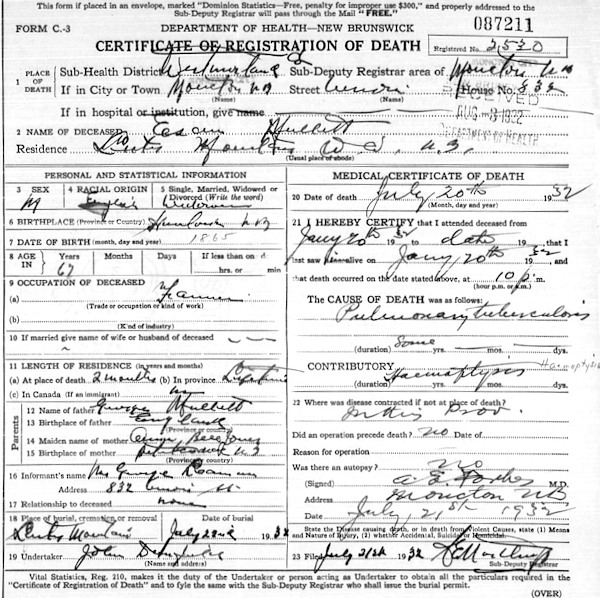 This form if placed in an envelope, marked "Dominion Statistics—Free, penalty for improper use $300," and properly addressed to the
Sub-Deputy Registrar will pass through the Mail "FREE."
087211
FORM C.-3
DEPARTMENT OF HEALTH—NEW BRUNSWICK
CERTIFICATE OF REGISTRATION OF DEATH
Registered No. 2530
1 PLACE OF DEATH
Sub-Health District Westmorland Sub-Deputy Registrar area of Moncton NB
If in City or Town Moncton NB Street House No. 832
(Name) (Name)
RECEIVED
AUG 1932
DEPARTMENT OF HEALTH
If in hospital or institution, give name
2 NAME OF DECEASED
Residence Mountain
(Usual place of abode)
PERSONAL AND STATISTICAL INFORMATION
3 SEX
M
4 RACIAL ORIGIN
English
5 Single, Married, Widowed or
Divorced (Write the word)
Widower
6 BIRTHPLACE (Province or Country) N B
7 DATE OF BIRTH (month, day and year) 1865
8 AGE IN Years Months Days If less than one d
67 hrs. or min.
9 OCCUPATION OF DECEASED
(a) Farmer
(Trade or occupation or kind of work)
(b)
(Kind of industry)
10 If married give name of wife or husband of deceased
11 LENGTH OF RESIDENCE (in years and months)
(a) At place of death 2 months (b) in province Lifetime
(c) In Canada (If an immigrant)
Parents
12 Name of father George
13 Birthplace of father England
(Province or country)
14 Maiden name of mother Jones
15 Birthplace of mother
(Province or country)
16 Informant's name Mrs George
Address 832 St.
17 Relationship to deceased none
18 Place of burial, cremation or removal Date of burial
Mountain July 22nd 1932
19 Undertaker John
(Name and address)
MEDICAL CERTIFICATE OF DEATH
20 Date of death July 20th 1932
(Month, day and year)
21 I HEREBY CERTIFY that I attended deceased from
20th 32 to date 19 32, that I
last saw alive on 20th 19 32 and
that death occurred on the date stated above, at 10 p. m.
(hour p.m. or a.m.)
The CAUSE OF DEATH was as follows:
Pulmonary tuberculosis
(duration) Some yrs. mos. dys.
CONTRIBUTORY Haemoptysis Haemoptysis
(duration) yrs. mos. dys.
22 Where was disease contracted if not at place of death?
In this Prov.
Did an operation precede death? no Date of
Reason for operation
Was there an autopsy? No
(Signed) M.D.
Moncton NB
Date July 21st 1932
State the Disease causing death, or in death from Violent Causes, state (1) Means
and Nature of Injury, (2) whether Accidental, Suicidal or Homicidal.
23 Filed July 21st 1932
Sub-Deputy Registrar
Vital Statistics, Reg. 210, makes it the duty of the Undertaker or person acting as Undertaker to obtain all the particulars required in the
"Certificate of Registration of Death" and to fyle the same with the Sub-Deputy Registrar who shall issue the burial permit.
(OVER)